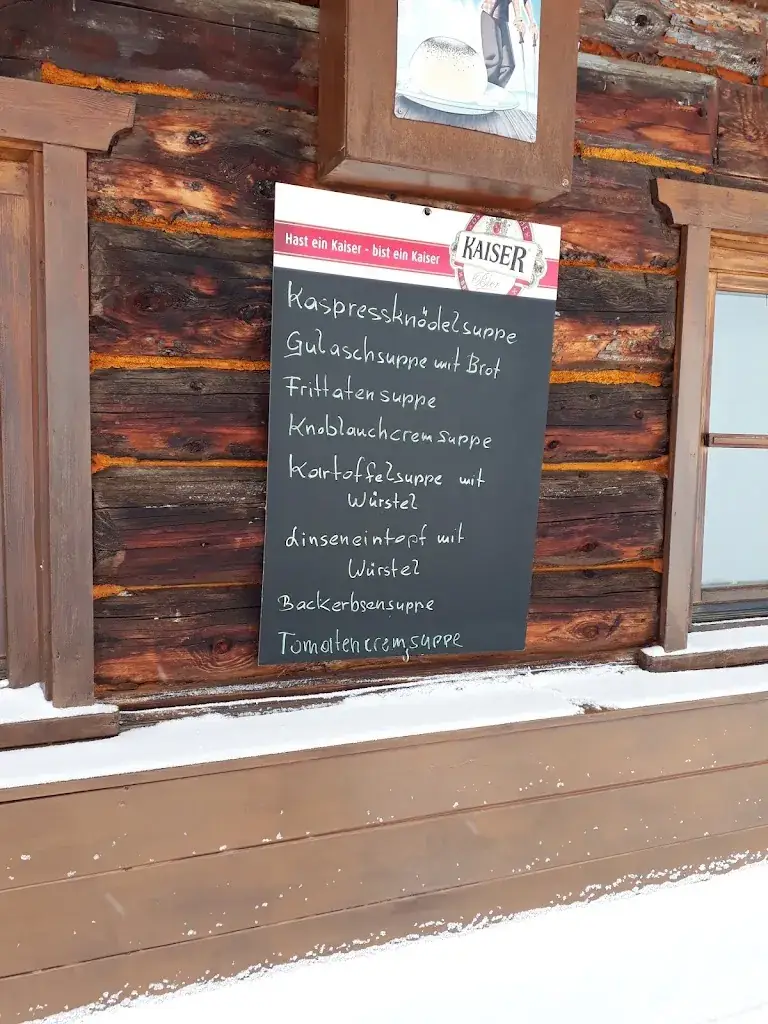 Hast ein Kaiser - bist ein Kaiser
KAISER
Bier
Kaspressknödelsuppe
Gulaschsuppe mit Brot
Frittatensuppe
Knoblauchcremsuppe
Kartoffelsuppe mit
Würstel
Linseneintopf mit
Würstel
Backerbsensuppe
Tomatencremsuppe